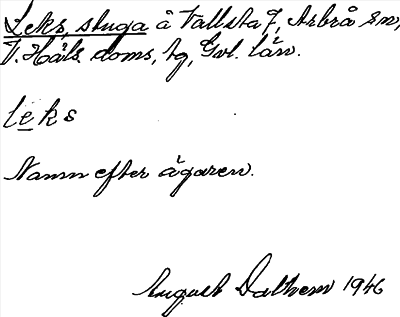 Leks, stuga å Vallsta 7, Arbrå sn,
V. Häls. doms, tg, Gvl. län.
leks
Namn efter ägaren.
August Dalhem 1946